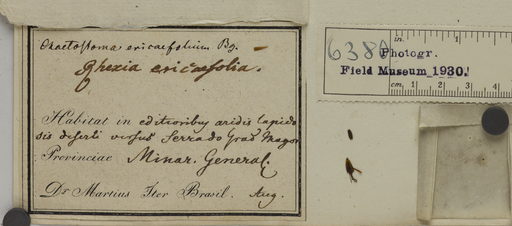 Chaetostoma ericaefolium Bg.
Rhexia ericaefolia.
Habitat in editioribus aridis lapido
sis deserti versus Serra do Grao Mogor
Provinciae Minar. General.
Dr Martius Iter Brasil. Aug.
6380
Photogr.
Field Museum 1930.
in. 1
cm. 1 2 3 4